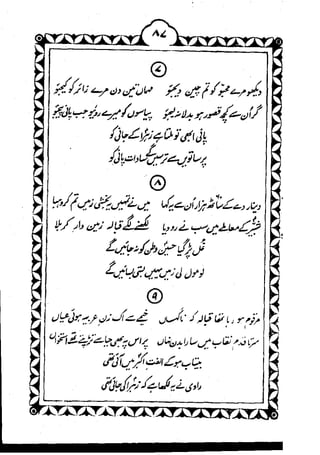 ۸۷
۷
دیکھو مرے محبو کو تم چین دیجیو مہماں تین دن مرے زائر کو کیجیو
گر اُن سے کچھ قصور ہو بدلا نہ لیجیو پیاسوں کو میرے رو کے جب پانی پیجیو
پانی ابھی تو ملتا ہے زہرا کے جانی کو
پر ساتویں سے ترسیں گے سادات پانی کو
۸
دینار دے کے ساٹھ ہزار اُن سے یہ کہا میں نے تمہیں یہ بخشی زمیں تم کرو
شبیر کے معاملے میں سب نے رو دیا لکھنے لگے قبالہ زمین دار کربلا
غل پڑ گیا حسین وطن کو نہ جائیں گے
لو مول لی زمیں یہیں بستی بسائیں گے
۹
مرقوم ہو رہا تھا قبالہ کہ ناگہاں خیمے سے اک زن عربیہ ہوئی عیاں
سر تا قدم نقاب میں سارا بدن نہاں پر اس پہ بھی حیا سے تھے استخواں
بیتاب ہو کے الفت اکبر میں آئی تھی
راوی نے یہ لکھا ہے کہ زہرا کی جائی تھی